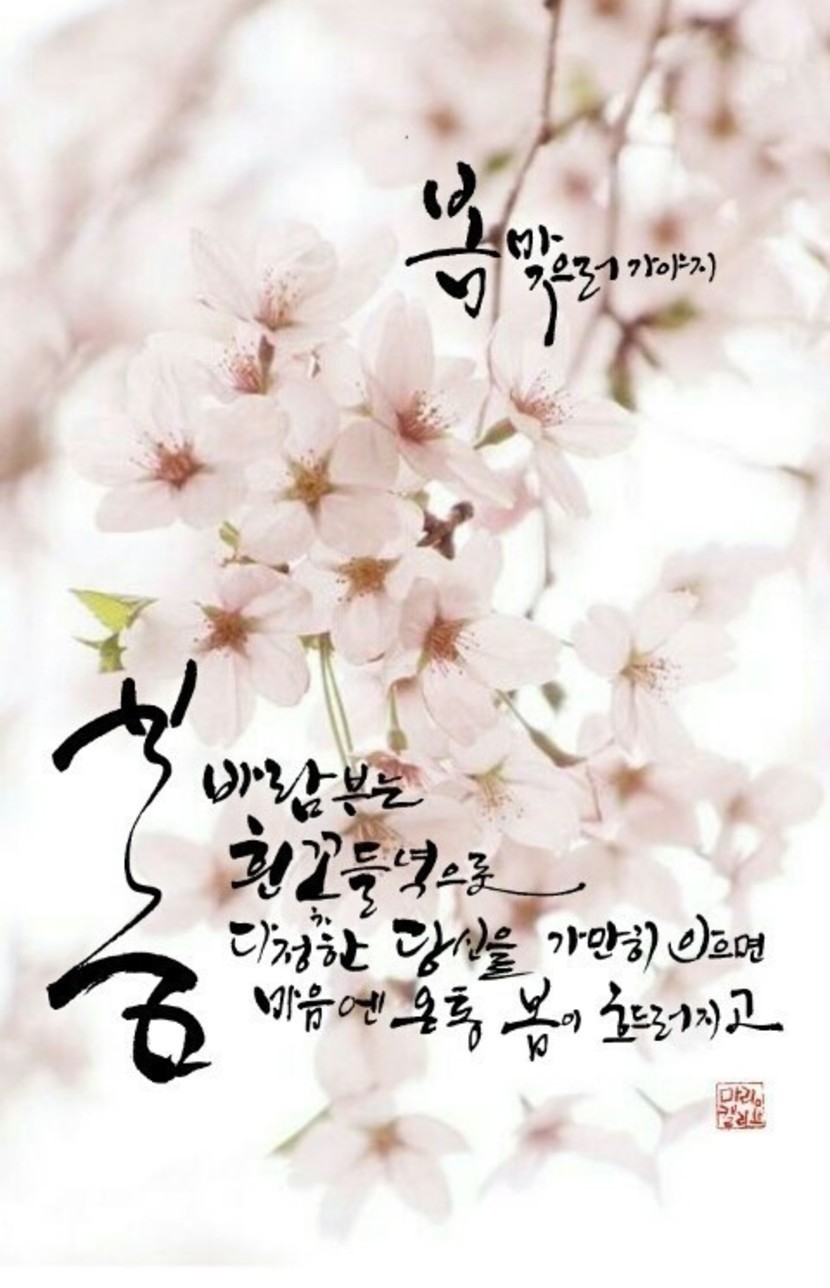 봄 맞으러 가야지
봄
바람부는
흰꽃들녘으로
다정한 당신을 가만히 안으면
마음엔 온통 봄이 흐드러지고
마리의
캘리그라피